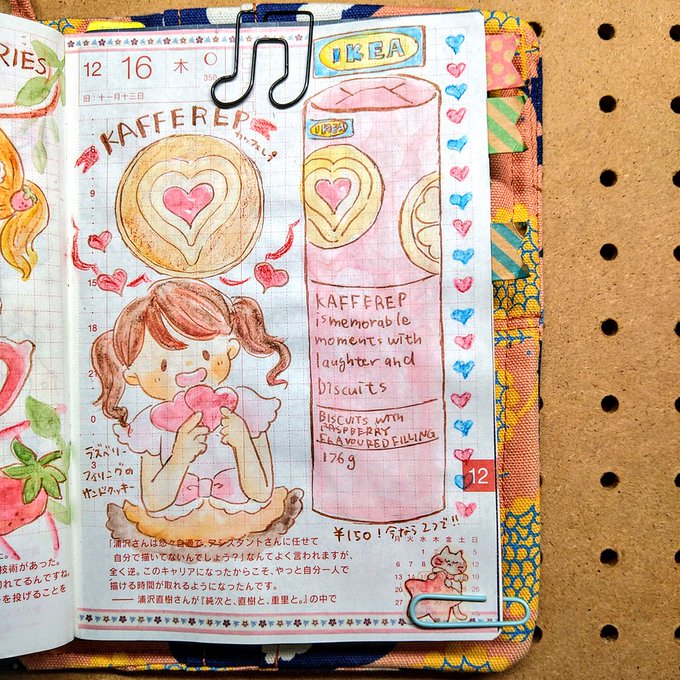 RIES
12 16 木
350
旧:十一月十三日
KAFFEREP
カッフェレプ
9
12
15
18
21
0
3
ラズベリー
フィリングの
サンドクッキー
IKEA
IKEA
KAFFEREP
is memorable
moments with
laughter and
biscuits
BISCUITS WITH
RASPBERRY
FLAVOURED FILLING
176g
12
¥150!今なら2つで!!
「浦沢さんは悠々自適で、アシスタントさんに任せて
自分で描いてないんでしょう?」なんてよく言われますが、
全く逆。このキャリアになったからこそ、やっと自分一人で
描ける時間が取れるようになったんです。
——浦沢直樹さんが『純次と、直樹と、重里と。』の中で
月 火 水 木 金 土 日
技術があった。
れてるんですね。
を投げることを